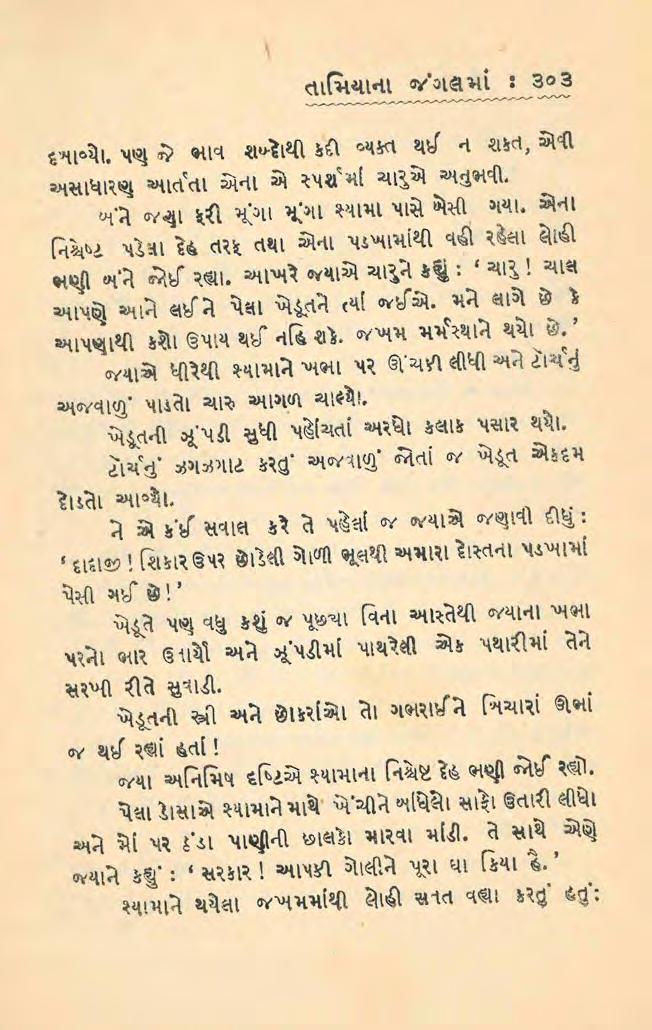 તામિયાના જંગલમાં : ૩૦૩
દબાવ્યો. પણ જે ભાવ શબ્દોથી કદી વ્યક્ત થઈ ન શકત, એવી
અસાધારણ આર્તતા એના એ સ્પર્શમાં ચારુએ અનુભવી.
બંને જણા ફરી મૂંગા મૂંગા શ્યામા પાસે બેસી ગયા. એના
નિશ્ચેષ્ટ પડેલા દેહ તરફ તથા એના પડખામાંથી વહી રહેલા લોહી
ભણી બંને જોઈ રહ્યા. આખરે જયાએ ચારુને કહ્યું : ‘ ચારુ ! ચાલ
આપણે આને લઈને પેલા ખેડૂતને ત્યાં જઈએ. મને લાગે છે કે
આપણાથી કશો ઉપાય થઈ નહિ શકે. જખમ મર્મસ્થાને થયો છે. ’
જયાએ ધીરેથી શ્યામાને ખભા પર ઊંચકી લીધી અને ટોર્ચનું
અજવાળું પાડતો ચારુ આગળ ચાલ્યો.
ખેડૂતની ઝૂંપડી સુધી પહોંચતાં અરધો કલાક પસાર થયો.
ટોર્ચનું ઝગઝગાટ કરતું અજવાળું જોતાં જ ખેડૂત એકદમ
દોડતો આવ્યો.
ને એ કંઈ સવાલ કરે તે પહેલાં જ જયાએ જણાવી દીધું :
‘ દાદાજી ! શિકાર ઉપર છોડેલી ગોળી ભૂલથી અમારા દોસ્તના પડખામાં
પેસી ગઈ છે ! ’
ખેડૂતે પણ વધુ કશું જ પૂછ્યા વિના આસ્તેથી જયાના ખભા
પરનો ભાર ઉતાર્યો અને ઝૂંપડીમાં પાથરેલી એક પથારીમાં તેને
સરખી રીતે સુવાડી.
ખેડૂતની સ્ત્રી અને છોકરાંઓ તો ગભરાઈને બિચારાં ઊભાં
જ થઈ રહ્યાં હતાં !
જયા અનિમિષ દૃષ્ટિએ શ્યામાના નિશ્ચેષ્ટ દેહ ભણી જોઈ રહ્યો.
પેલા ડોસાએ શ્યામાને માથે ખેંચીને બાંધેલો સાફો ઉતારી લીધો
અને મોં પર ઠંડા પાણીની છાલકો મારવા માંડી. તે સાથે એણે
જયાને કહ્યું : ‘ સરકાર ! આપકી ગોલીને પૂરા ઘા કિયા હૈ. ’
શ્યામાને થયેલા જખમમાંથી લોહી સતત વહ્યા કરતું હતું :